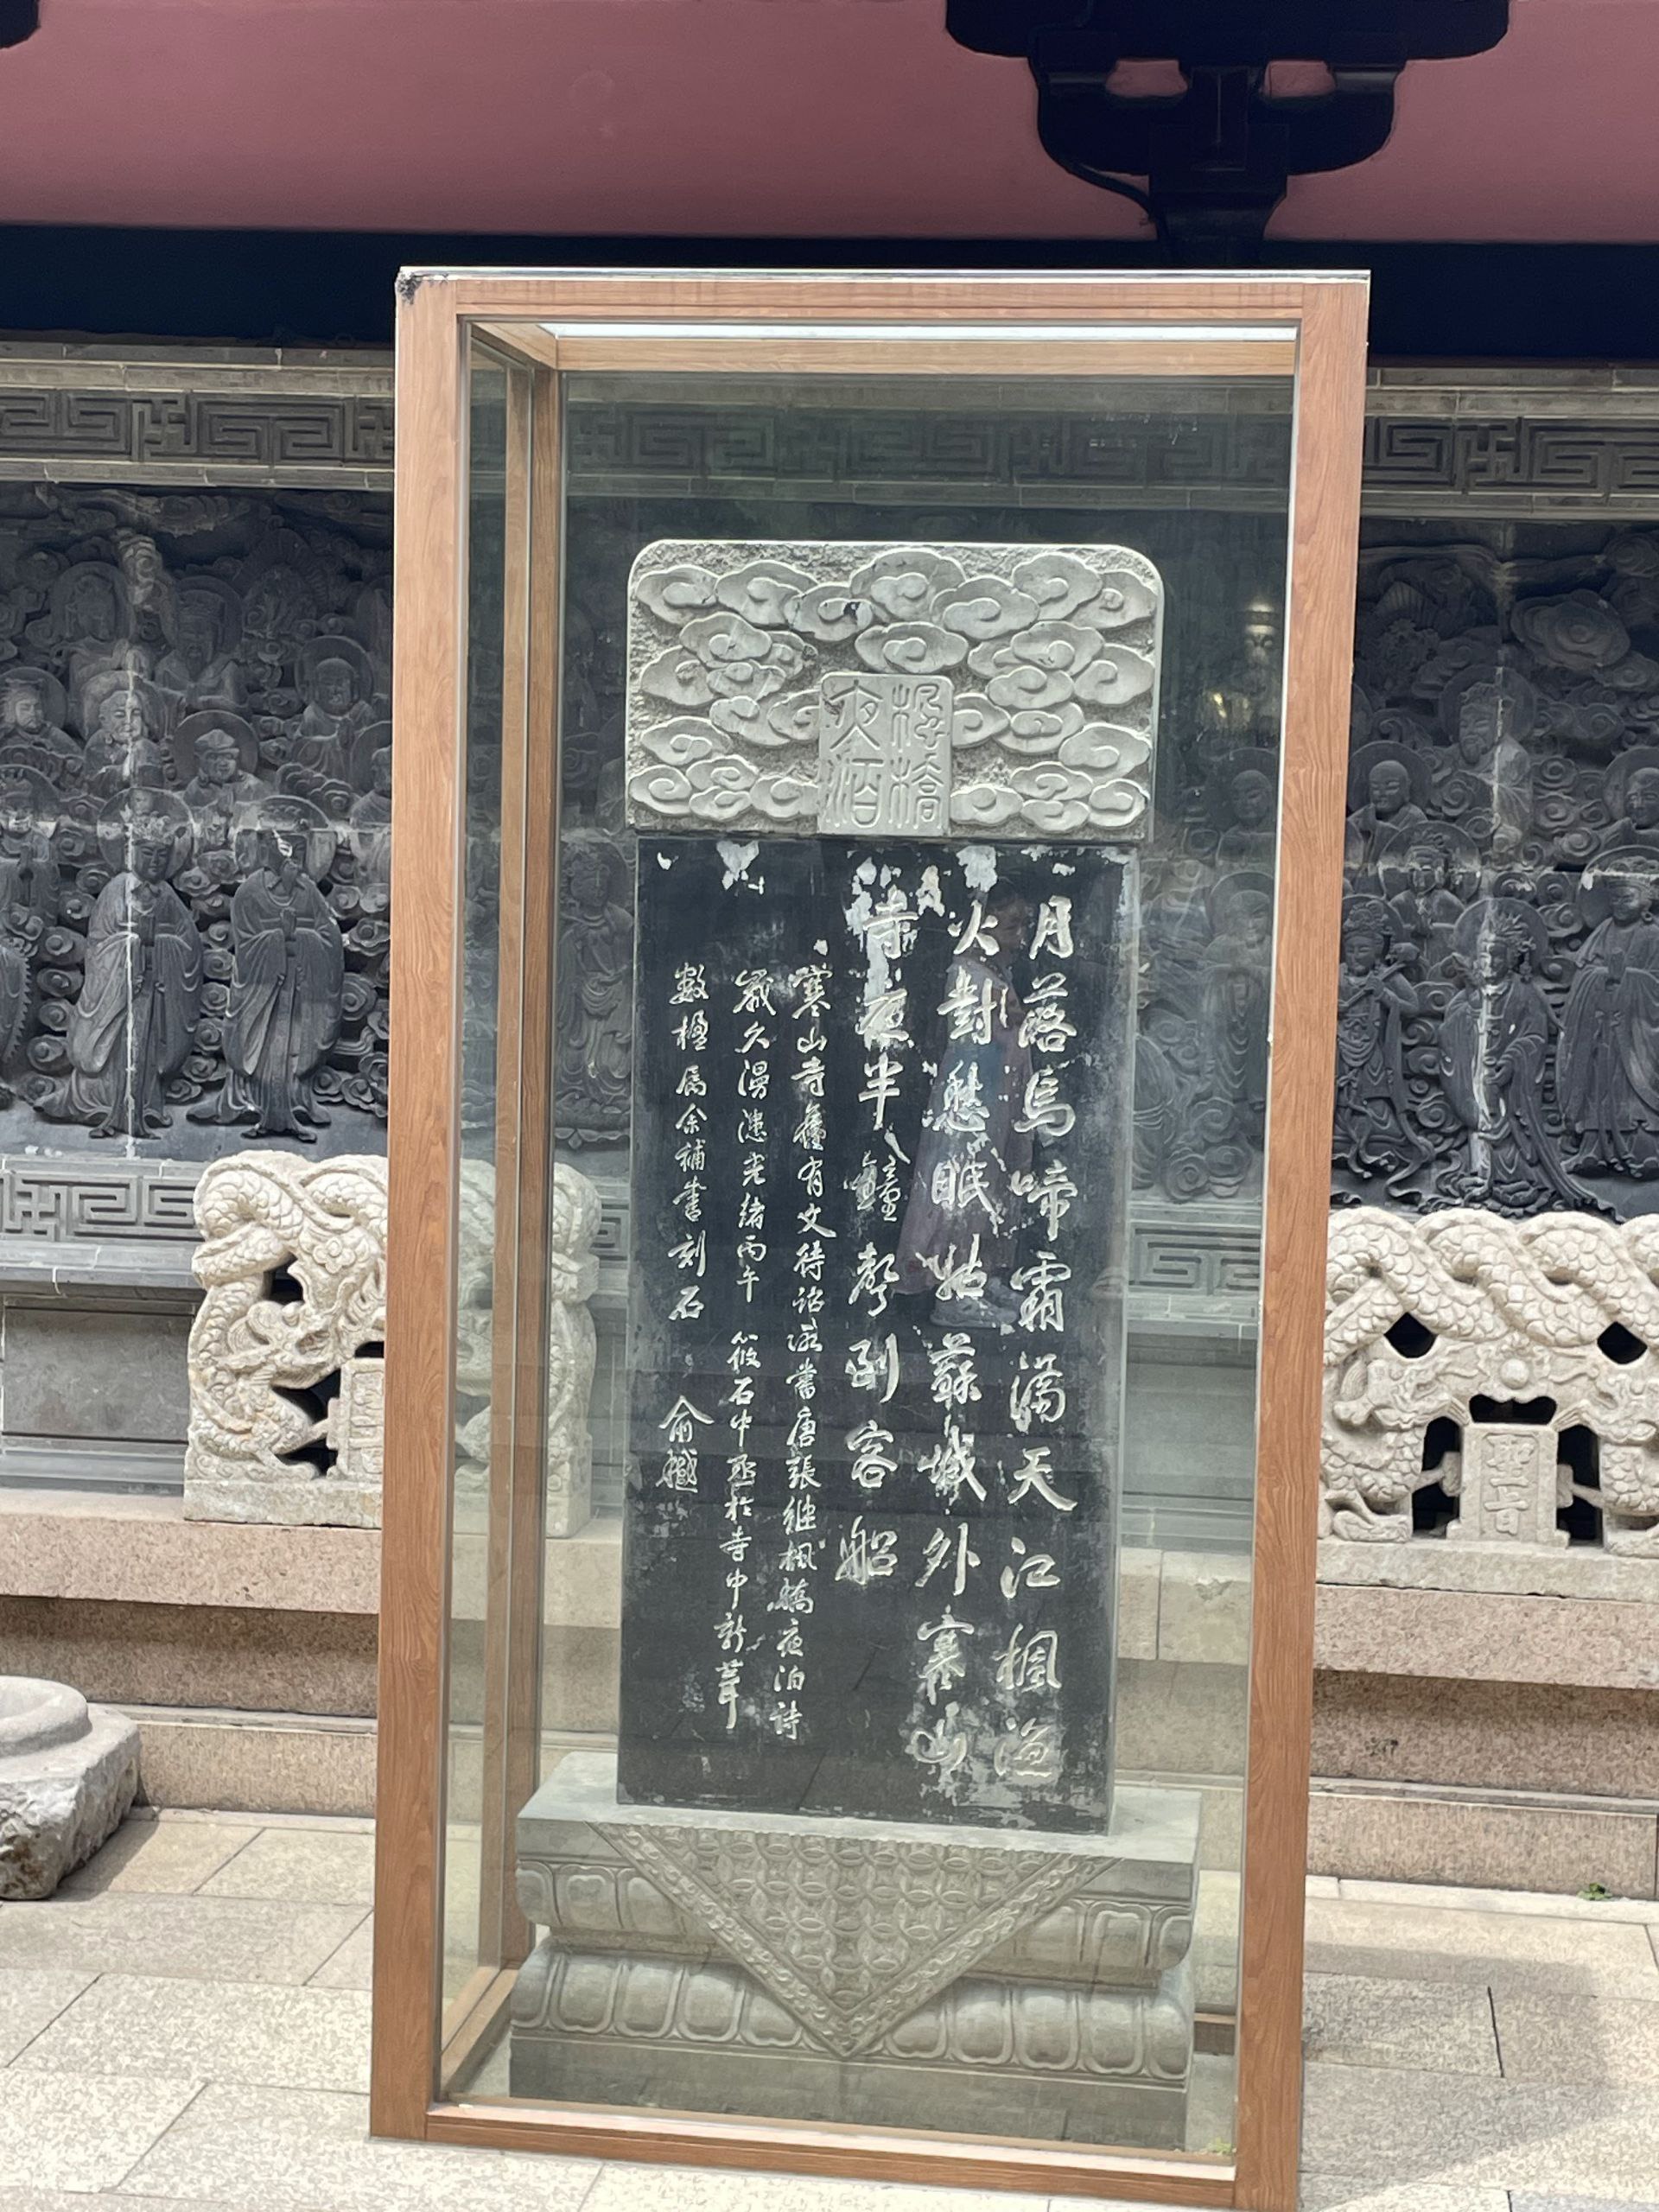 楓橋
夜泊
月落烏啼霜滿天江楓漁
火對愁眠姑蘇城外寒山
寺夜半鐘聲到客船
寒山寺舊有文待詔所書唐張繼楓橋夜泊詩
歲久漫漶光緒丙午筱石中丞於寺中新葺
數楹屬余補書刻石
俞樾
聖旨